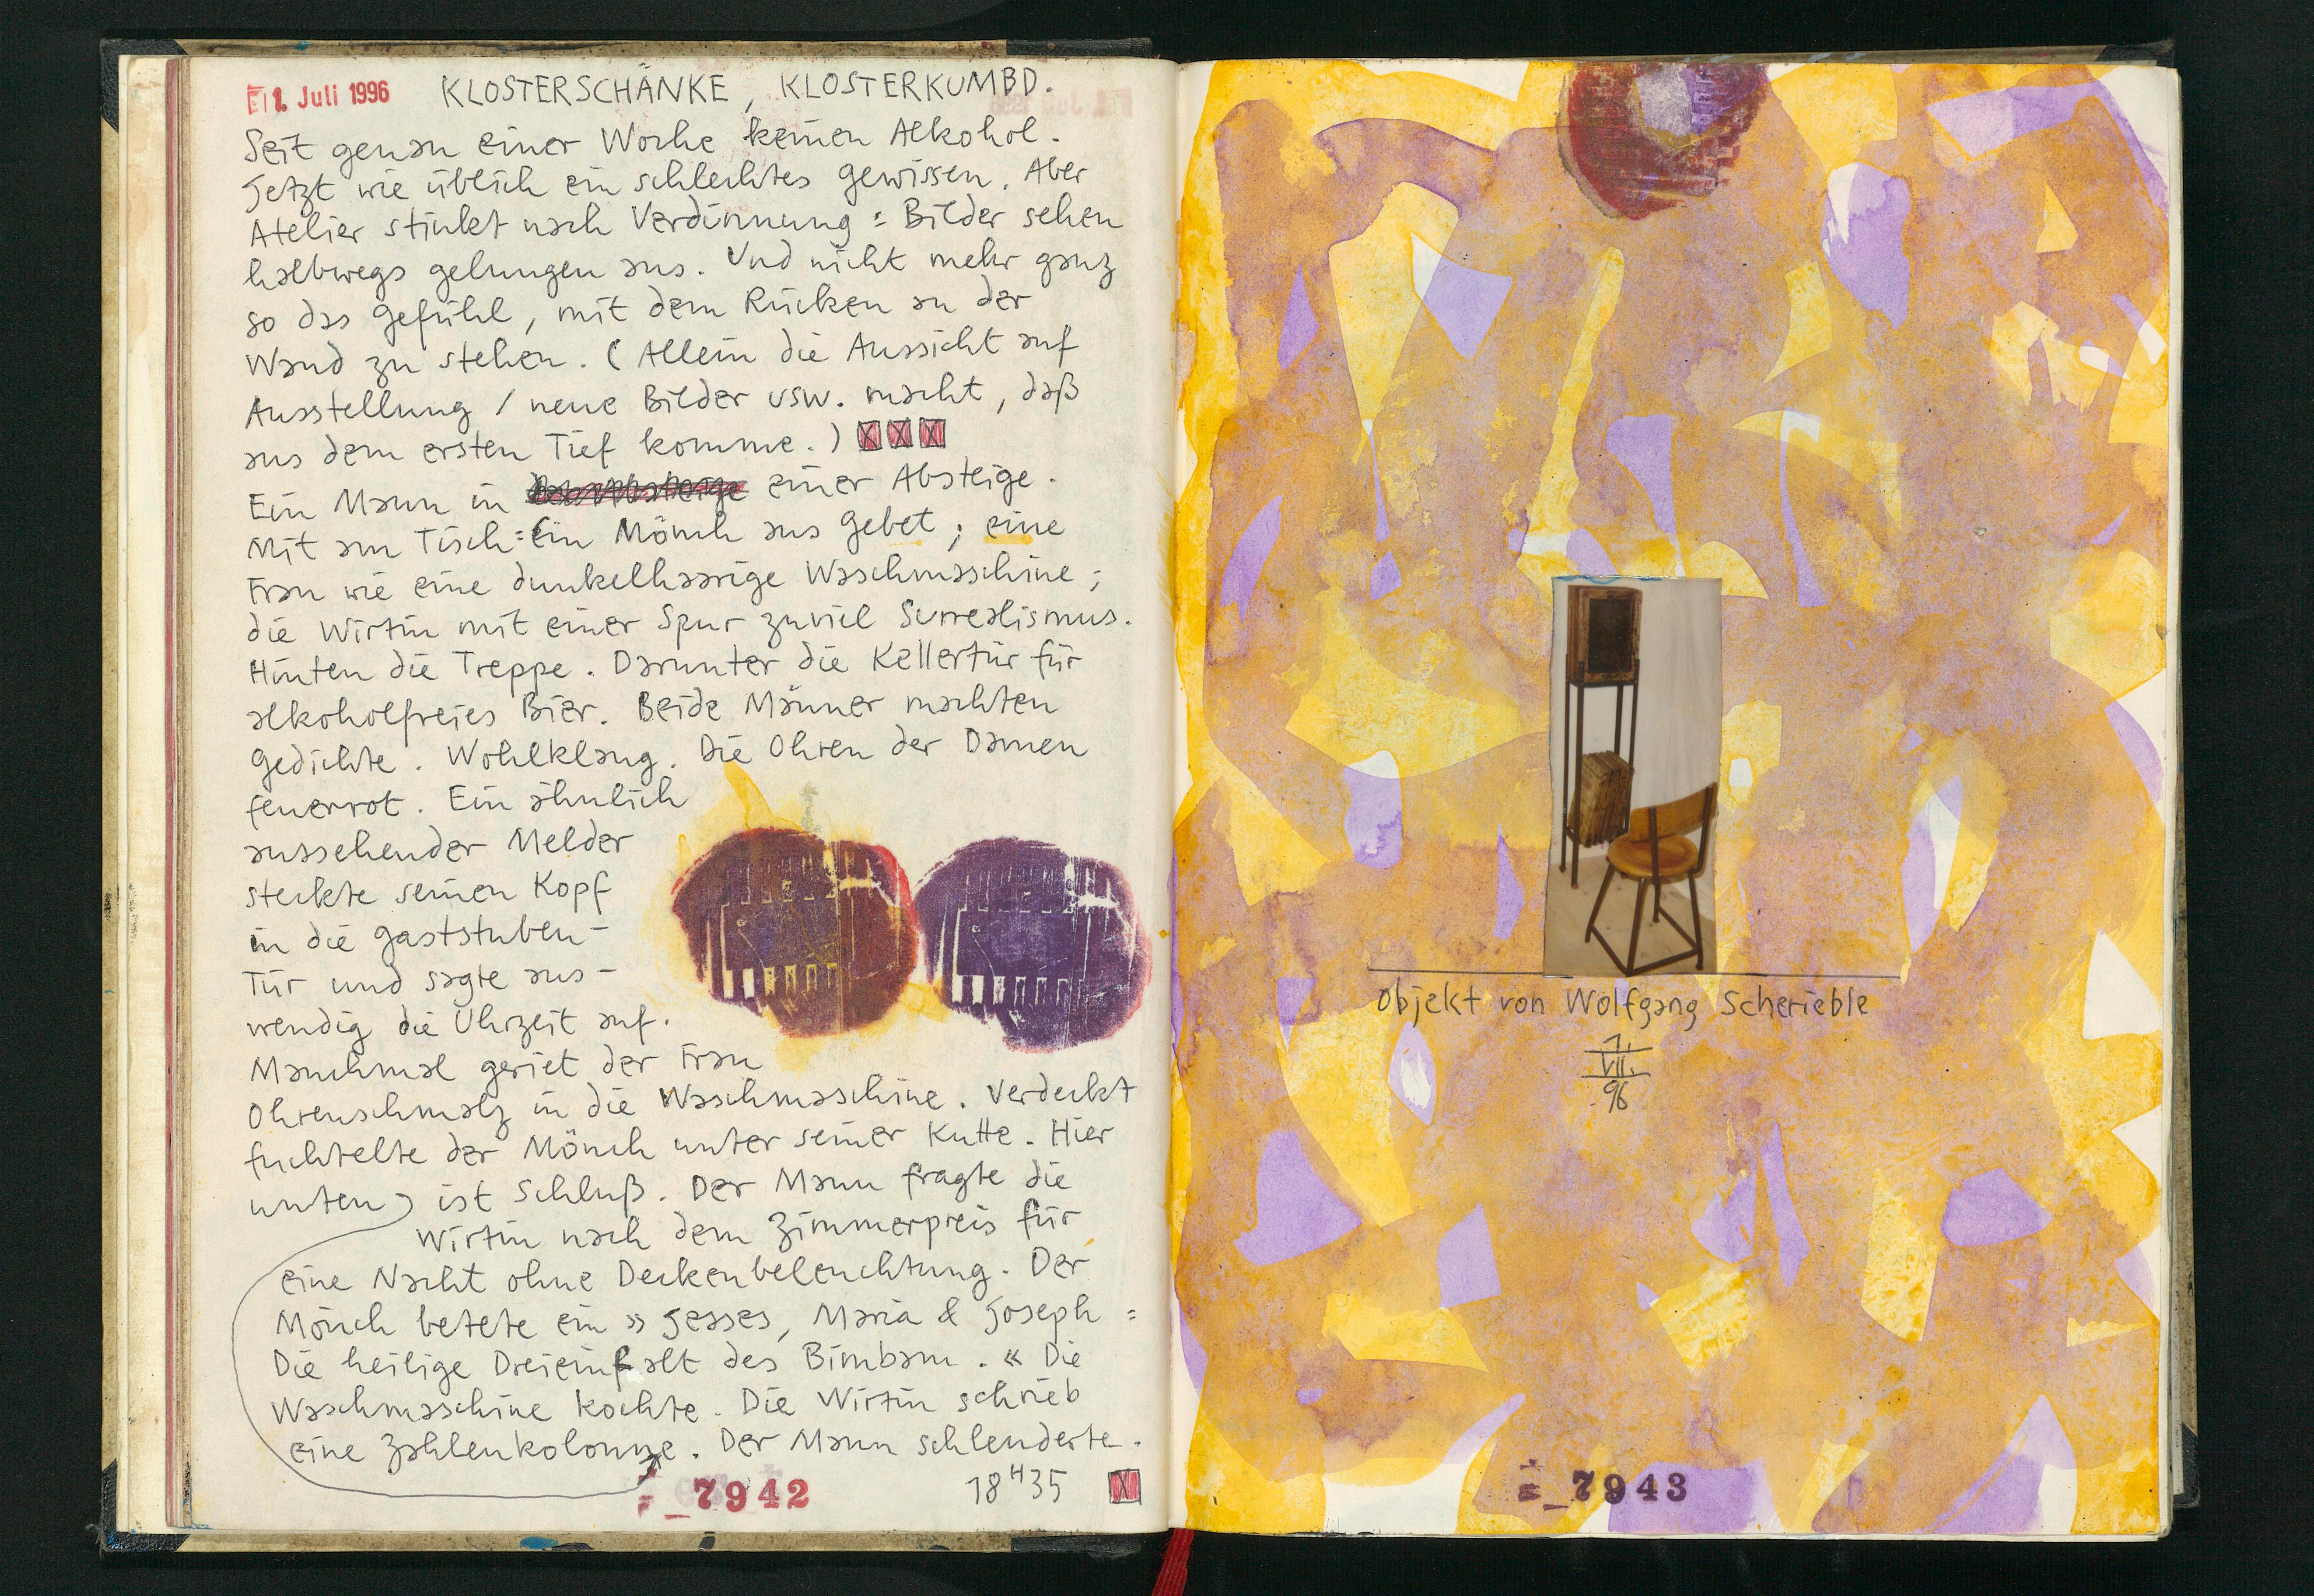 1. Juli 1996 KLOSTERSCHÄNKE, KLOSTERKUMBD.
Seit genau einer Woche keinen Alkohol.
Jetzt wie üblich ein schlechtes Gewissen. Aber
Atelier stinkt nach Verdünnung = Bilder sehen
halbwegs gelungen aus. Und nicht mehr ganz
so das Gefühl, mit dem Rücken an der
Wand zu stehen. (Allein die Aussicht auf
Ausstellung / neue Bilder usw. macht, daß
aus dem ersten Tief komme.)
Ein Mann in einer Absteige.
Mit am Tisch: Ein Mönch aus Gebet; eine
Frau wie eine dunkelhaarige Waschmaschine;
die Wirtin mit einer Spur zuviel Surrealismus.
Hinten die Treppe. Darunter die Kellertür für
alkoholfreies Bier. Beide Männer machten
Gedichte. Wohlklang. Die Ohren der Damen
feuerrot. Ein ähnlich
aussehender Melder
steckte seinen Kopf
in die Gaststuben-
Tür und sagte aus-
wendig die Uhrzeit auf.
Manchmal geriet der Frau
Ohrenschmalz in die Waschmaschine. Verdeckt
fuchtelte der Mönch unter seiner Kutte. Hier
unten ist Schluß. Der Mann fragte die
Wirtin nach dem Zimmerpreis für
eine Nacht ohne Deckenbeleuchtung. Der
Mönch betete ein »Jesses, Maria & Joseph =
Die heilige Dreieinfalt des Bimbam.« Die
Waschmaschine kochte. Die Wirtin schrieb
eine Zahlenkolonne. Der Mann schlenderte.
7942 18H35
Objekt von Wolfgang Scherieble
1.
VII.
96
7943